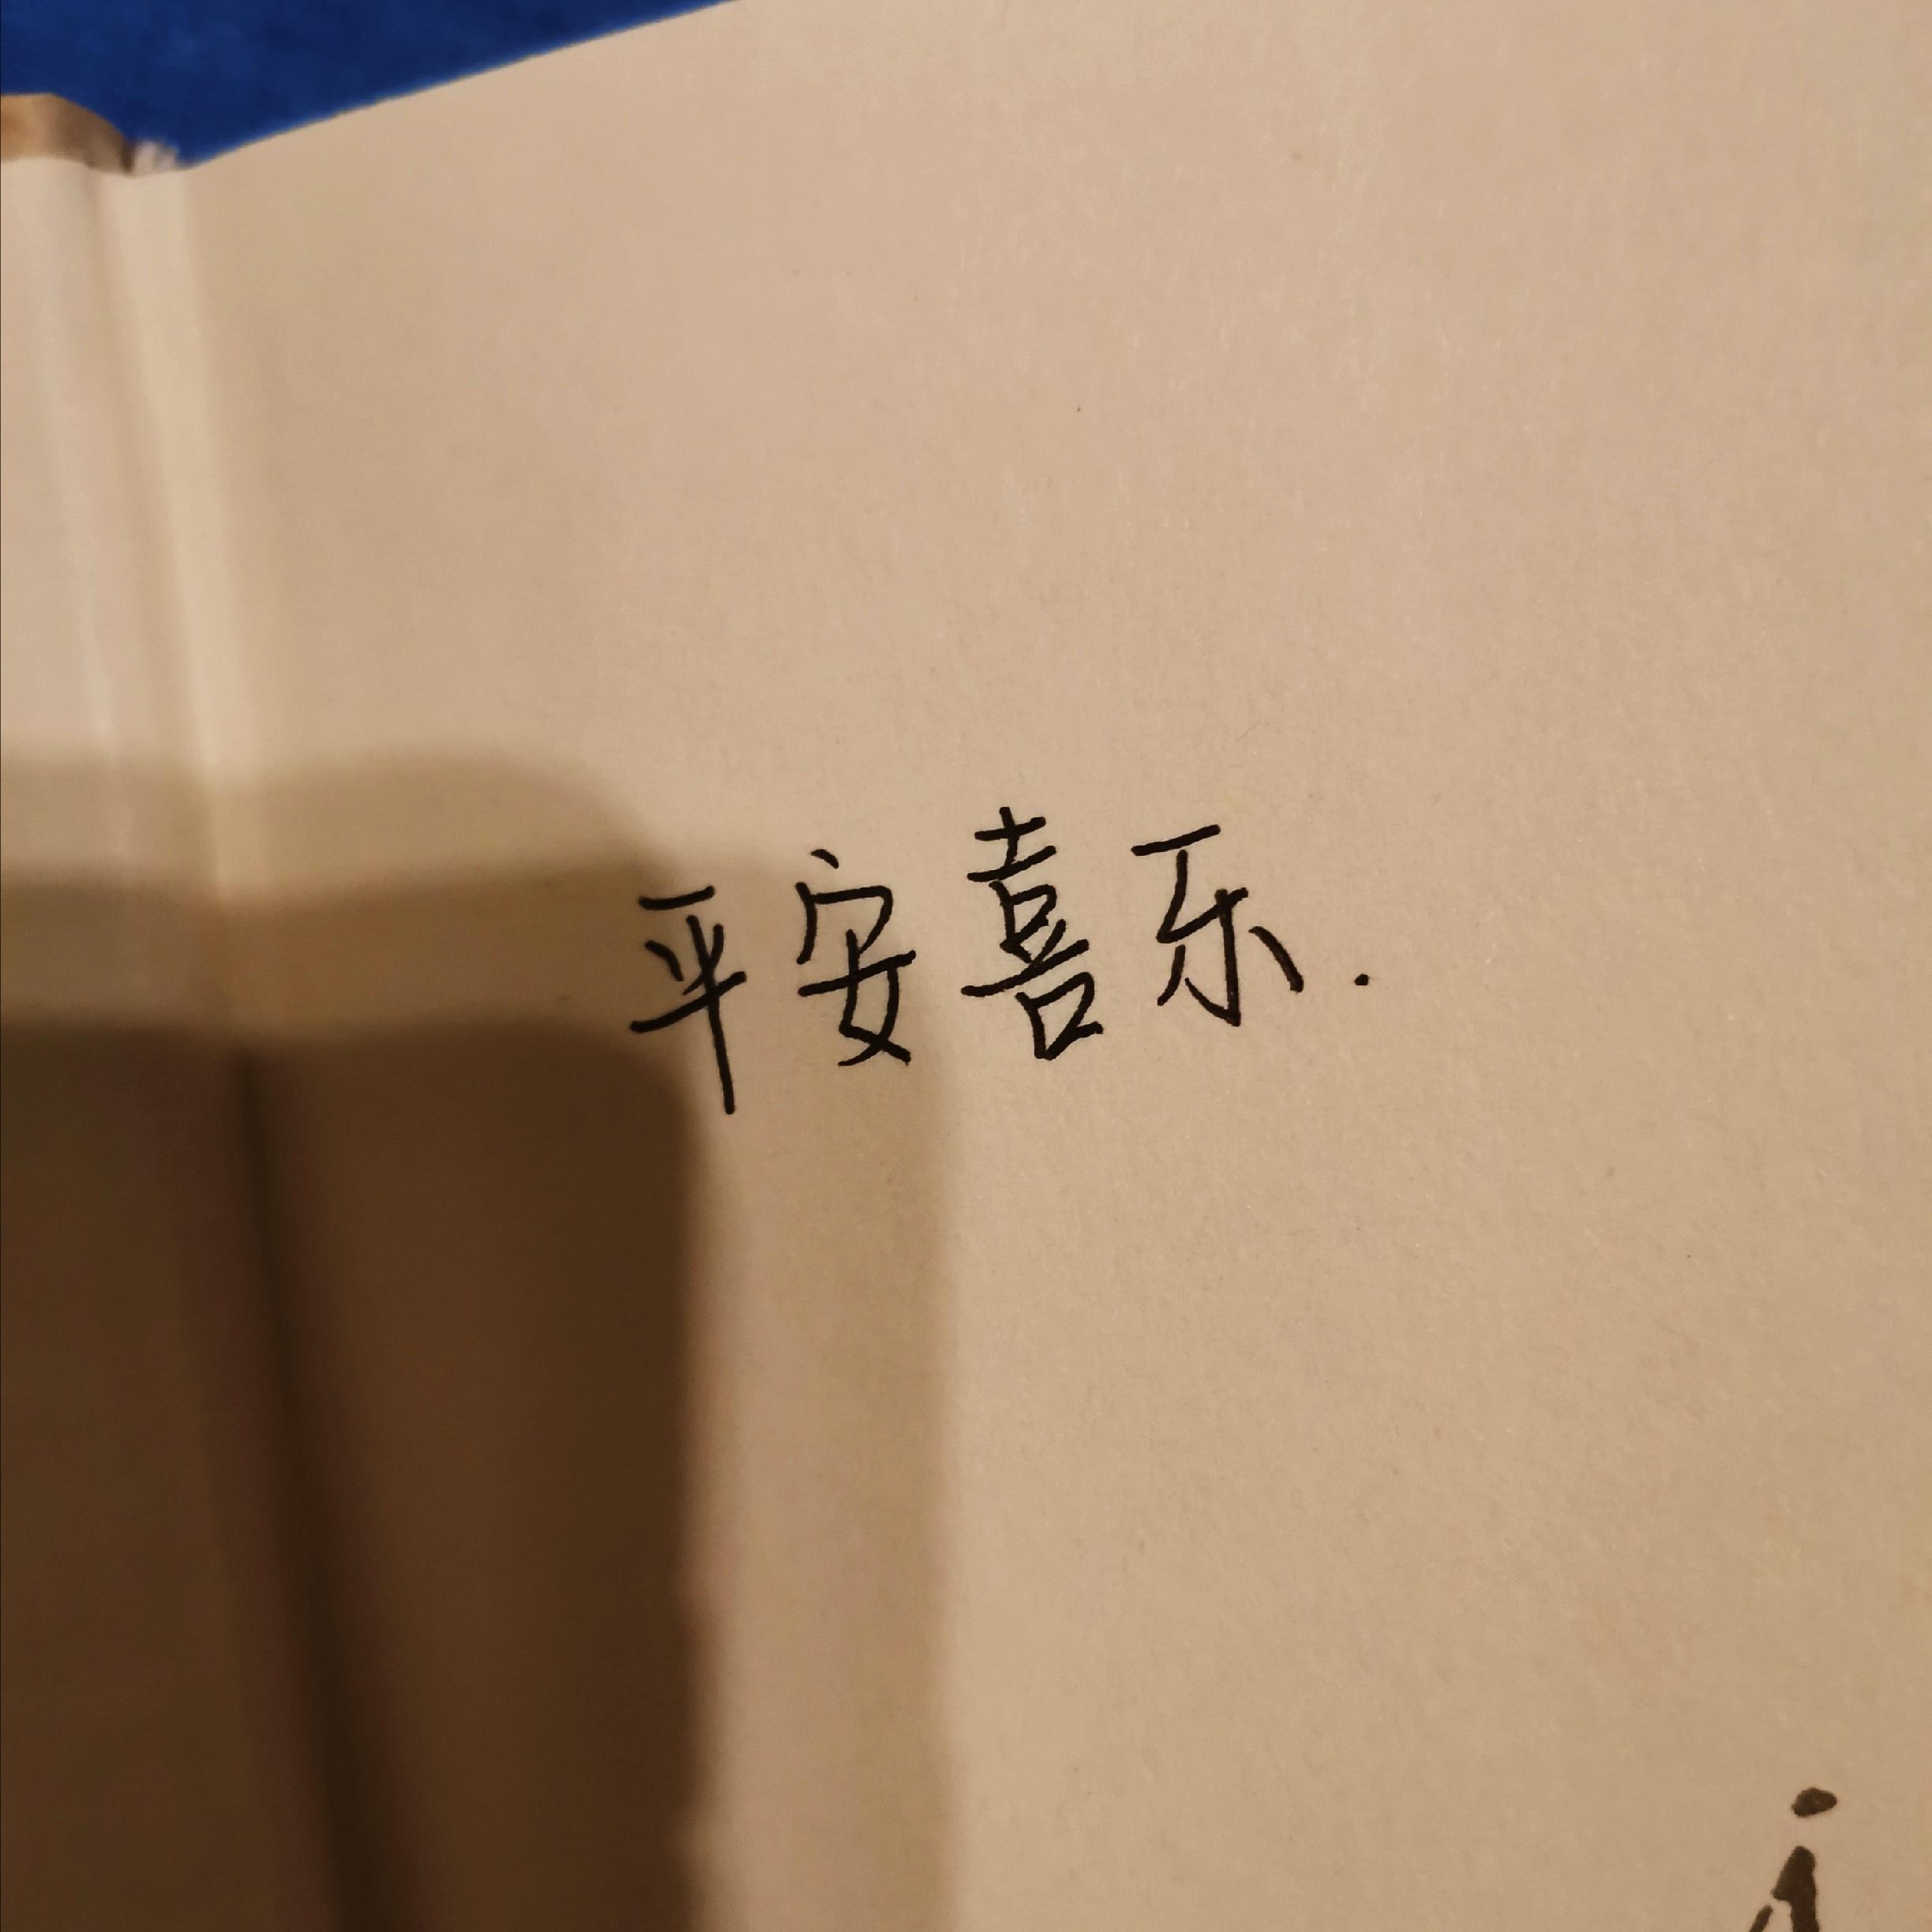 平安喜乐.